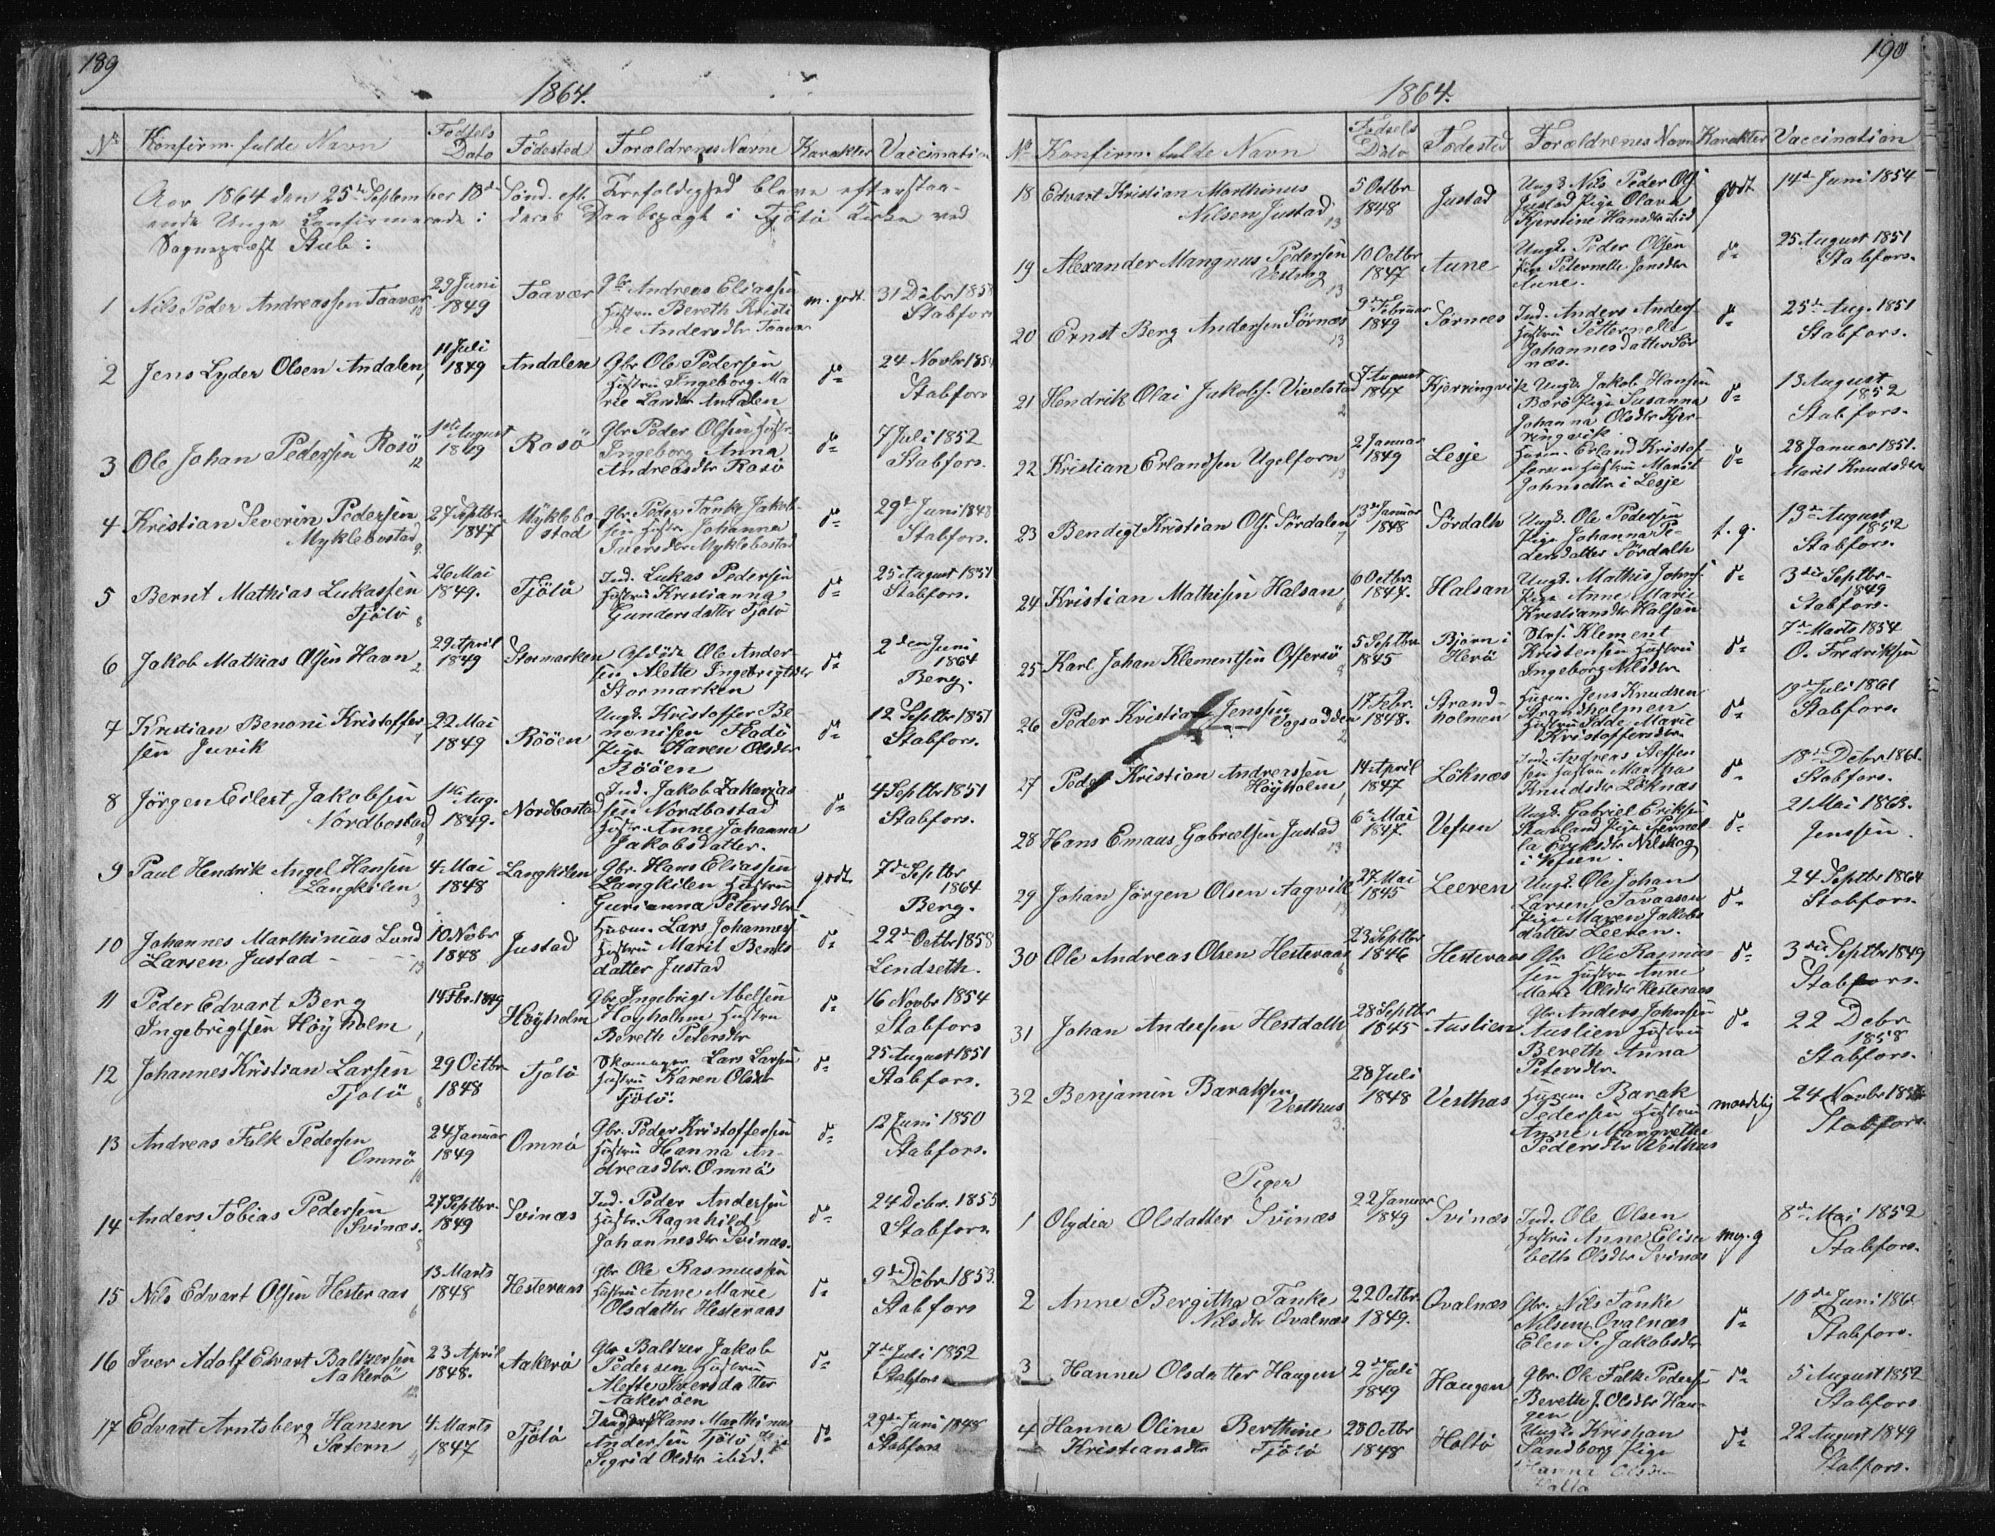 189
1864.
No Konfirm. fulde Navn Fødsels Dato Fødested Forældrenes Navne Karakter Vaccination
Aar 1864 den 25de September 18de Sönd. eft. Trefoldighed bleve efterstaa-
ende Unge Konfirmerede i deres Daabspagt i Tjötö Kirke ved
Sognepræst Stub:
1 Nils Peder Andreassen Taavær
29 Juni 1849
Taavær
Gbr Andreas Eliassen
Hustru Bereth Kristi
ne Andersdtr Taavær
m. godt.
31 Debr 185
Stabfors
2 Jens Lyder Olsen Andalen
11 Juli 1849
Andalen
Gbr Ole Pedersen
Hustru Ingeborg Ma
rie Larsdtr Andalen
do
24 Novbr 185
Stabfors
3 Ole Johan Pedersen Rosö 12
1ste August 1849
Rosö
Gbr Peder Olsen Hustr.
Ingeborg Anna
Andreasdtr Rosö
do
7 Juli 1852
Stabfors.
4 Kristian Severin Pedersen
Myklebostad
27 Septbr. 1847
Myklebo
stad
Gbr Peder Tanke Jakob-
sen Hustr. Johanna
Iversdtr Myklebostad
do
29de Juni 1848
Stabfors.
5 Bernt Mathias Lukassen
Tjötö 8
26 Mai 1849.
Tjötö
Ind. Lukas Pedersen
Hustru Kristianna
Gundersdatter Tjötö
do
25 August 1851
Stabfors.
6 Jakob Mathias Olsen Havn 2
29 April 1849
Stormarken
Afdöde Ole Ander
sen Alette Ingebrigtsdtr
Stormarken
do
2den Juni
1864
Berg.
7 Kristian Benoni Kristoffer
sen Juvik
22 Mai 1849
Rööen
Ungk. Kristoffer Be
nonisen Fladö
Pige Karen Olsdtr
Rööen
do
12 Septbr 1851
Stabfors.
8 Jörgen Eilert Jakobsen
Nordbostad
1ste Aug. 1849.
Nordbostad
Ind. Jakob Zakarias
sen Nordbostad
Hustr. Anne Johanna
Jakobsdatter.
do
4 Septbr 1851
Stabfors.
9 Paul Hendrik Angel Hansen
Langkilen 3
4. Mai 1848
Langkilen
Gbr. Hans Eliassen
Langkilen Hustru
Gurianna Petersdtr
godt
7de Septbr
1864
Berg.
10 Johannes Marthinius Lund
Larsen Justad 13
10 Novbr 1848
Justad
Husm. Lars Johannes
Hustru Marit Bents-
datter Justad
do
22de Octbr 1858
Lindseth.
11 Peder Edvart Berg
Ingebrigtsen Höyholm 1
14 Fbr. 1849
Höyholm
Gbr Ingebrigt Abelsen
Höyholm Hustru
Bereth Petersdtr
do
16 Novbr 1854
Stabfors
12 Johannes Kristian Larsen
Tjötö 8
29 Octbr 1848
Tjötö
Skomager Lars Larsen
Hustru Karen Olsdtr
Tjötö.
do
25 August 1851
Stabfors.
13 Andreas Falk Pedersen
Omnö 10
24 Januar 1849
Omnö
Gbr. Peder Kristoffersen
Hustru Hanna An-
dreasdtr. Omnö
do
12 Juni 1850
Stabfors.
14 Anders Tobias Pedersen
Svinæs. 5
27 Septbr. 1849
Svinæs
Ind. Peder Andersen
Hustr. Ragnhild
Johannesdtr Svinæs.
do
24 Debr. 1855
Stabfors.
15 Nils Edvart Olsen Hesteraas 6
13 Marts 1848
Hesteraas
Gbr Ole Rasmussen
Hustru Anne Marie
Olsdatter Hesteraas
do
9de Debr. 1853.
Stabfors
16 Iver Adolf Edvart Baltzersen
Aakerö 12
23 April 1848.
Aakerö
Gbr Baltzer Jakob
Pedersen Hustru
Alette Iversdatter
Aakeröen
do
7de Juli 1852
Stabfors
17 Edvart Arntsberg Hansen
Sætern
4. Marts 1847
Tjötö
Hans Marthinus
Andersen Tjötö
Sigrid Olsdtr ibid.
do
29de Juni 1848
Stabfors
190
1864.
No Konfirm. fulde Navn Fødsels Dato Fødested Forældrenes Navn Karakter Vaccination
18 Edvart Kristian Marthinus
Nilsen Justad 13
5 Octbr 1848
Justad
Ungk. Nils Peder Ols
Justad Pige Olava
Kjerstine Hansdtr ibid
godt
14de Juni 1854
19 Alexander Mangnus Pedersen
Vestvog 13
10 Octbr 1847
Aune
Ungk. Peder Olsen
Pige Peternelle Jensdtr
Aune.
do
25 August 1851
Stabfors.
20 Ernst Berg Andersen Sörnæs 13
9de Februar 1849
Sörnæs
Ind. Anders Anders
Hustru Petternella
Johannesdatter Sör
næs.
do
25de Aug. 1851
Stabfors.
21 Hendrik Olai Jakobs. Vivelstad 2
7 August 1847
Kjerringvik
Ungk. Jakob Hansen
Bærö Pige Susanna
Johanna Olsdtr Kjer-
ringvik
do
13 August
1852
Stabfors.
22 Kristian Erlandsen Ugelforn 13
2 Januar 1849
Lesje
Husm. Erland Kristof-
fersen Hustru Marit
Johnsdtr i Lesje
do
28 Januar 1851.
Marit Knudsdtr
23 Bendigt Kristian Ols. Sördalen 7
13de Januar 1848
Sördalh
Ungk. Ole Pedersen
Pige Johanna Pe-
dersdatter Sördalh
t. g.
13de August
1852
Stabfors.
24 Kristian Mathisen Halsan 6
6 Octbr. 1847.
Halsan
Ungk. Mathis Johns.
Pige Anne Marie
Kristiansdtr Halsan
do
3die Septbr-
1849
Stabfors.
25 Karl Johan Klementsen Offersö
5 Septbr 1845
Bjørn i
Herö
Klement
Kristensen Hustru
Ingeborg Nilsdtr.
do
7de Marts 1854
O. Fredriksen
26 Peder Kristian Jenssen
Vogsadden 2
17 Febr. 1848.
Strand-
holmen
Husm. Jens Knudsen
Strandholmen
Hustru Edde Marie
Kristoffersdtr.
do
19de Juli 1861
Stabfors.
27 Peder Kristian Andreassen
Höyholm 1
14 April 1847
Löknæs
Ind. Andreas Steffen
sen Hustru Martha
Knudsdtr Löknæs
do
18de Debr 1861.
Stabfors.
28 Hans Emaus Gabrielsen Justad 13
6te Mai 1847.
Vefsen
Ungk. Gabriel Eriksen
Pige Pernel-
la Eriksdtr Nilskog
i Vfsen.
do
21 Mai 1863.
Jenssen.
29 Johan Jörgen Olsen Aagvik 13
27 Mai 1845
Leeren
Ungk. Ole Johan
Larsen Tovaasen
Pige Maren Jakobs
datter Leeren.
do
24 Septbr 1864
Stabfors.
30 Ole Andreas Olsen Hesteraas 6
23 Septbr 1846
Hesteraas
Gbr. Ole Rasmus-
sen Hustru Anne
Marie Olsdtr Hesteraas
do
3die Septbr 1849
Stabfors.
31 Johan Andersen Hestdalh 6
28 Septbr 1845
Auslien
Gbr Anders Johnsen
Auslien Hustru
Bereth Anna
Petersdtr.
do
22 Debr
1858
Stabfors.
32 Benjamin Baraksen
Vesthus 3.
28 Juli 1848
Vesthas
Husm Barak
Pedersen Hustru
Anne Margrethe
Pedersdtr Vesthus
maadelig
24 Novbr 185
Stabfors.
Piger
1 Olydia Olsdatter Svinæs
22 Januar 1849
Svinæs
Ind. Ole Olsen
Hustru Anne Elisa
beth Olsdtr Svinæs
mg. g
8de Mai 1852
Stabfors.
2 Anne Bergitha Tanke
Nilsdtr Qvalnæs
22 Octbr. 1849.
Qvalnæs
Gbr. Nils Tanke
Nilsen Qvalnæs
Elen S. Jakobsdtr
do
10de Juni 186
Stabfors.
3 Hanna Olsdatter Haugen
2de Juli 1849
Haugen
Gbr. Ole Falk Pedersen
Bereth J. Olsdtr Hau-
gen
do
5 August 1852
Stabfors
4 Hanna Oline Berthine
Kristiansdtr Tjötö
28 Octbr 1848
Holtö
Ungk. Kristian
Sandborg Pige
Hanna Olsdtr
do
22 August 1849
Stabfors.